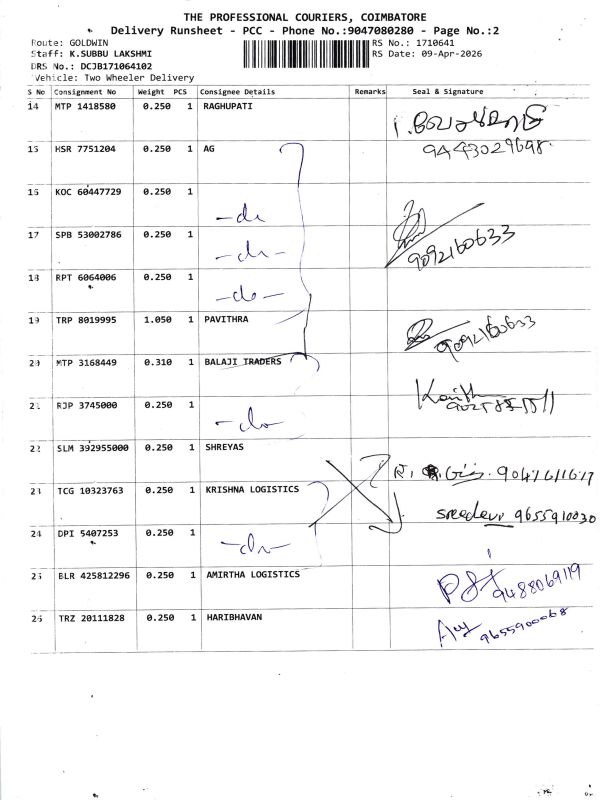 THE PROFESSIONAL COURIERS, COIMBATORE
Delivery Runsheet - PCC - Phone No.:9047080280 - Page No.:2
Route: GOLDWIN
Staff: K.SUBBU LAKSHMI
DRS No.: DCJB171064102
Vehicle: Two Wheeler Delivery
RS No.: 1710641
RS Date: 09-Apr-2026
S No Consignment No Weight PCS Consignee Details Remarks Seal & Signature
14 MTP 1418580 0.250 1 RAGHUPATI
15 HSR 7751204 0.250 1 AG
9443029698
16 KOC 60447729 0.250 1
-do-
17 SPB 53002786 0.250 1
-do-
9092160633
18 RPT 6064006 0.250 1
-do-
19 TRP 8019995 1.050 1 PAVITHRA
9092160633
20 MTP 3168449 0.310 1 BALAJI TRADERS
21 RJP 3745000 0.250 1
-do-
22 SLM 392955000 0.250 1 SHREYAS
9047611617
23 TCG 10323763 0.250 1 KRISHNA LOGISTICS
sreedevi 9655910030
24 DPI 5407253 0.250 1
-do-
25 BLR 425812296 0.250 1 AMIRTHA LOGISTICS
9488069119
26 TRZ 20111828 0.250 1 HARIBHAVAN
9655900068